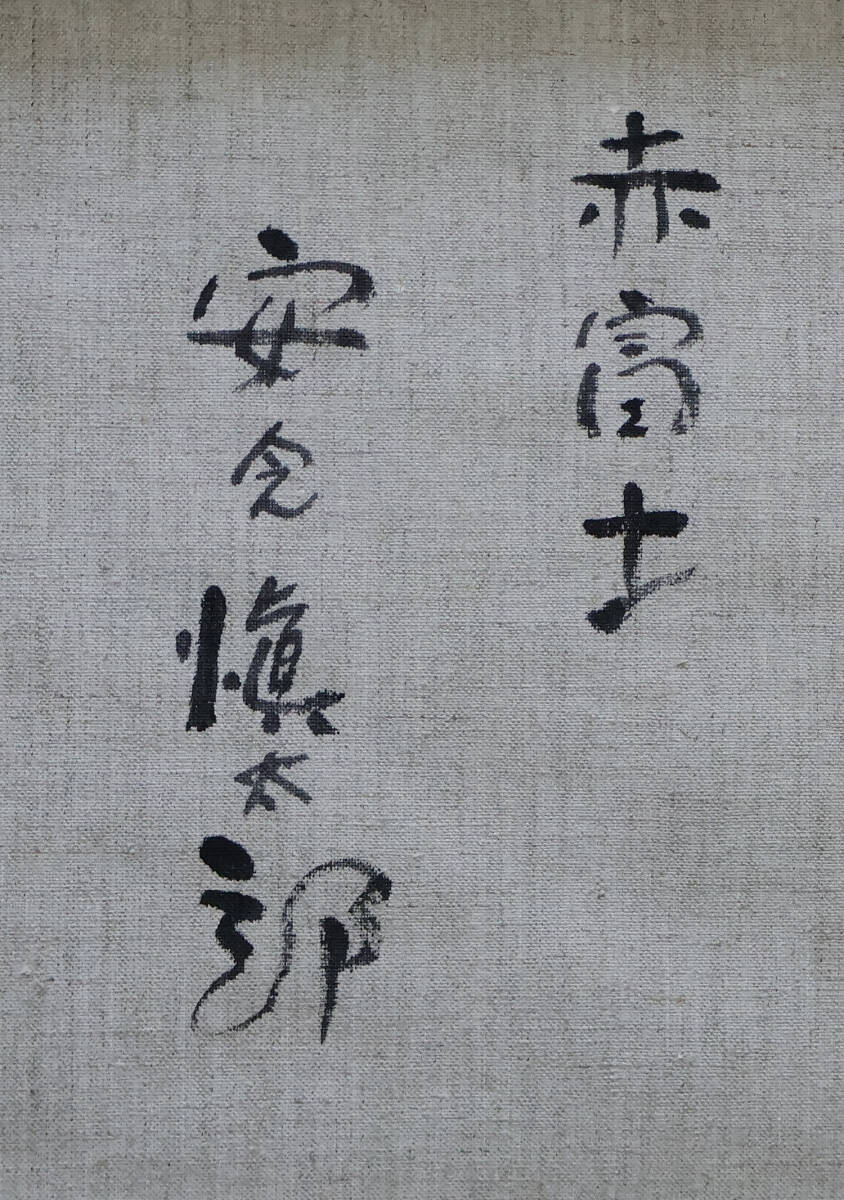 赤富士
安念慎太郎